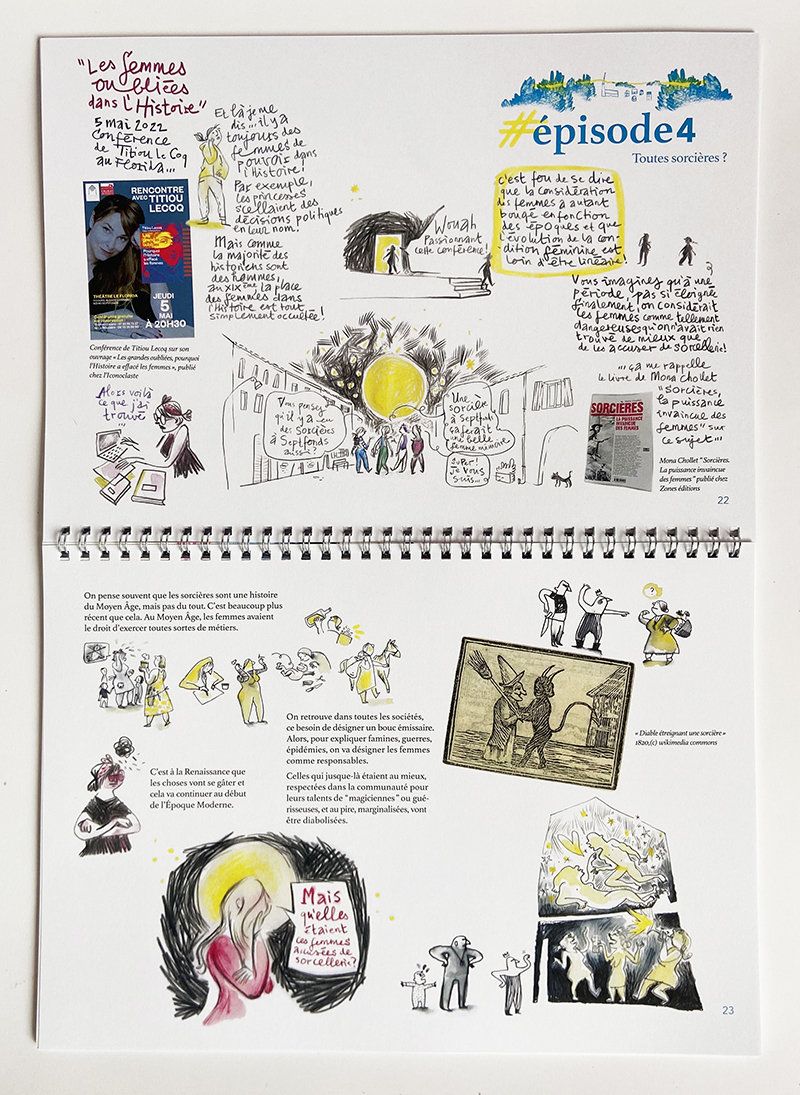 "Les femmes
oubliées
dans l'Histoire"
5 mai 2022
Conférence
de Titiou Le Coq
au Florida...
RENCONTRE
AVEC TITIOU
LECOQ
Titiou Lecoq
Pourquoi
l'histoire
a effacé
les femmes
THÉÂTRE LE FLORIDA
JEUDI
5
MAI
À 20H30
Conférence de Titiou Lecoq sur son
ouvrage « Les grandes oubliées, pourquoi
l'Histoire a effacé les femmes », publié
chez l'Iconoclaste
Alors voilà
ce que j'ai
trouvé
...
Et là je me
dis... il y a
toujours des
femmes de
pouvoir dans
l'histoire!
Par exemple,
les princesses
scellaient des
décisions politiques
en leur nom!
Mais comme
la majorité des
historiens sont
des hommes,
au XIXème la place
des femmes dans
l'Histoire est tout
simplement occultée!
Wough
Passionnant
cette conférence!
#épisode4
Toutes sorcières ?
c'est fou de se dire
que la considération
des femmes a autant
bougé en fonction
des époques et que
l'évolution de la con-
dition féminine est
loin d'être linéaire!
Vous imaginez qu'à une
période, pas si éloignée
finalement, on considérait
les femmes comme tellement
dangereuses qu'on n'avait rien
trouvé de mieux que
de les accuser de sorcellerie!
... ça me rappelle
le livre de Mona Chollet
"Sorcières,
la puissance
invaincue des
femmes" sur
ce sujet...
Vous pensez
qu'il y a eu
des Sorcières
à Septfonds
aussi?
Une
sorcière
à Septfonds
ça ferait
une belle
femme mémoire
Super!
Je vous
suis...
SORCIÈRES
LA PUISSANCE
INVAINCUE
DES FEMMES
Mona Chollet "Sorcières.
La puissance invaincue
des femmes" publié chez
Zones éditions
22
On pense souvent que les sorcières sont une histoire
du Moyen Âge, mais pas du tout. C'est beaucoup plus
récent que cela. Au Moyen Âge, les femmes avaient
le droit d'exercer toutes sortes de métiers.
?
On retrouve dans toutes les sociétés,
ce besoin de désigner un bouc émissaire.
Alors, pour expliquer famines, guerres,
épidémies, on va désigner les femmes
comme responsables.
« Diable étreignant une sorcière »
1820,(c) wikimedia commons
C'est à la Renaissance que
les choses vont se gâter et
cela va continuer au début
de l'Époque Moderne.
Celles qui jusque-là étaient au mieux,
respectées dans la communauté pour
leurs talents de "magiciennes" ou gué-
risseuses, et au pire, marginalisées, vont
être diabolisées.
Mais
qu'elles
étaient
ces femmes
accusées de
sorcellerie?
23